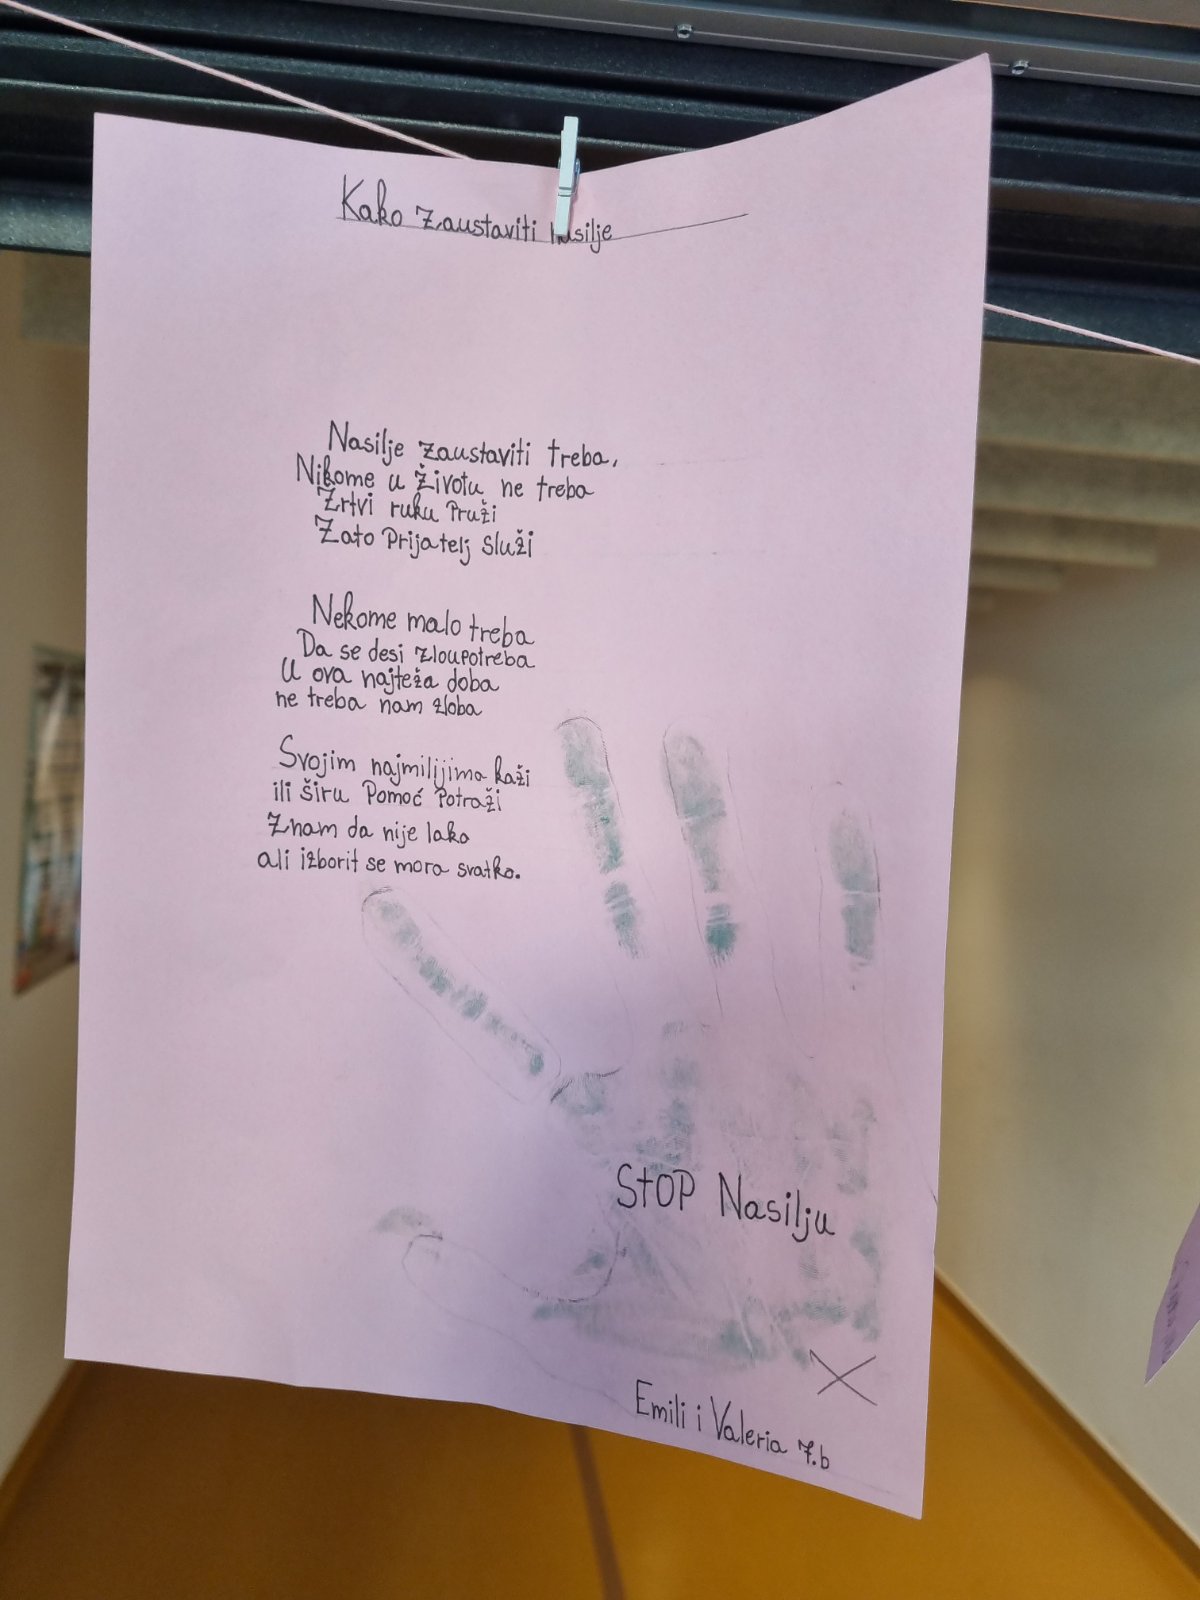 Kako zaustaviti nasilje
Nasilje zaustaviti treba,
Nikome u životu ne treba
Žrtvi ruku Pruži
Zato Prijatelj Služi
Nekome malo treba
Da se desi zloupotreba
U ova najteža doba
ne treba nam zloba
Svojim najmilijima kaži
ili širu Pomoć Potraži
Znam da nije lako
ali izborit se mora svatko.
StOP Nasilju
Emili i Valeria 7.b